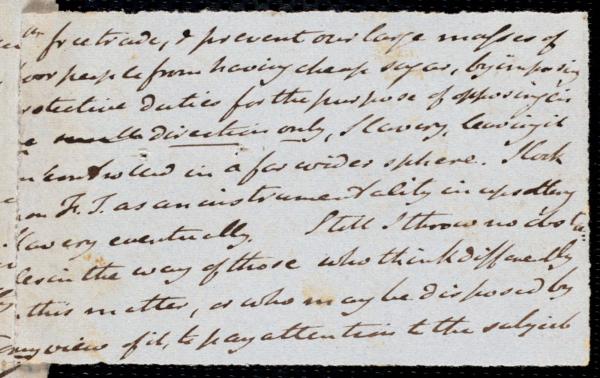 free trade, & prevent our large masses of
poor people from having cheap sugar, by imposing
protective duties for the purpose of opposing in
direction only, Slavery, leaving it
in a far wider sphere. I look
on F. T. as an instrumentality in upsetting
Slavery eventually. Still I throw no obsta-
cles in the way of those who think differently
this matter, or who may be disposed by
any view of it, to pay attention to the subject